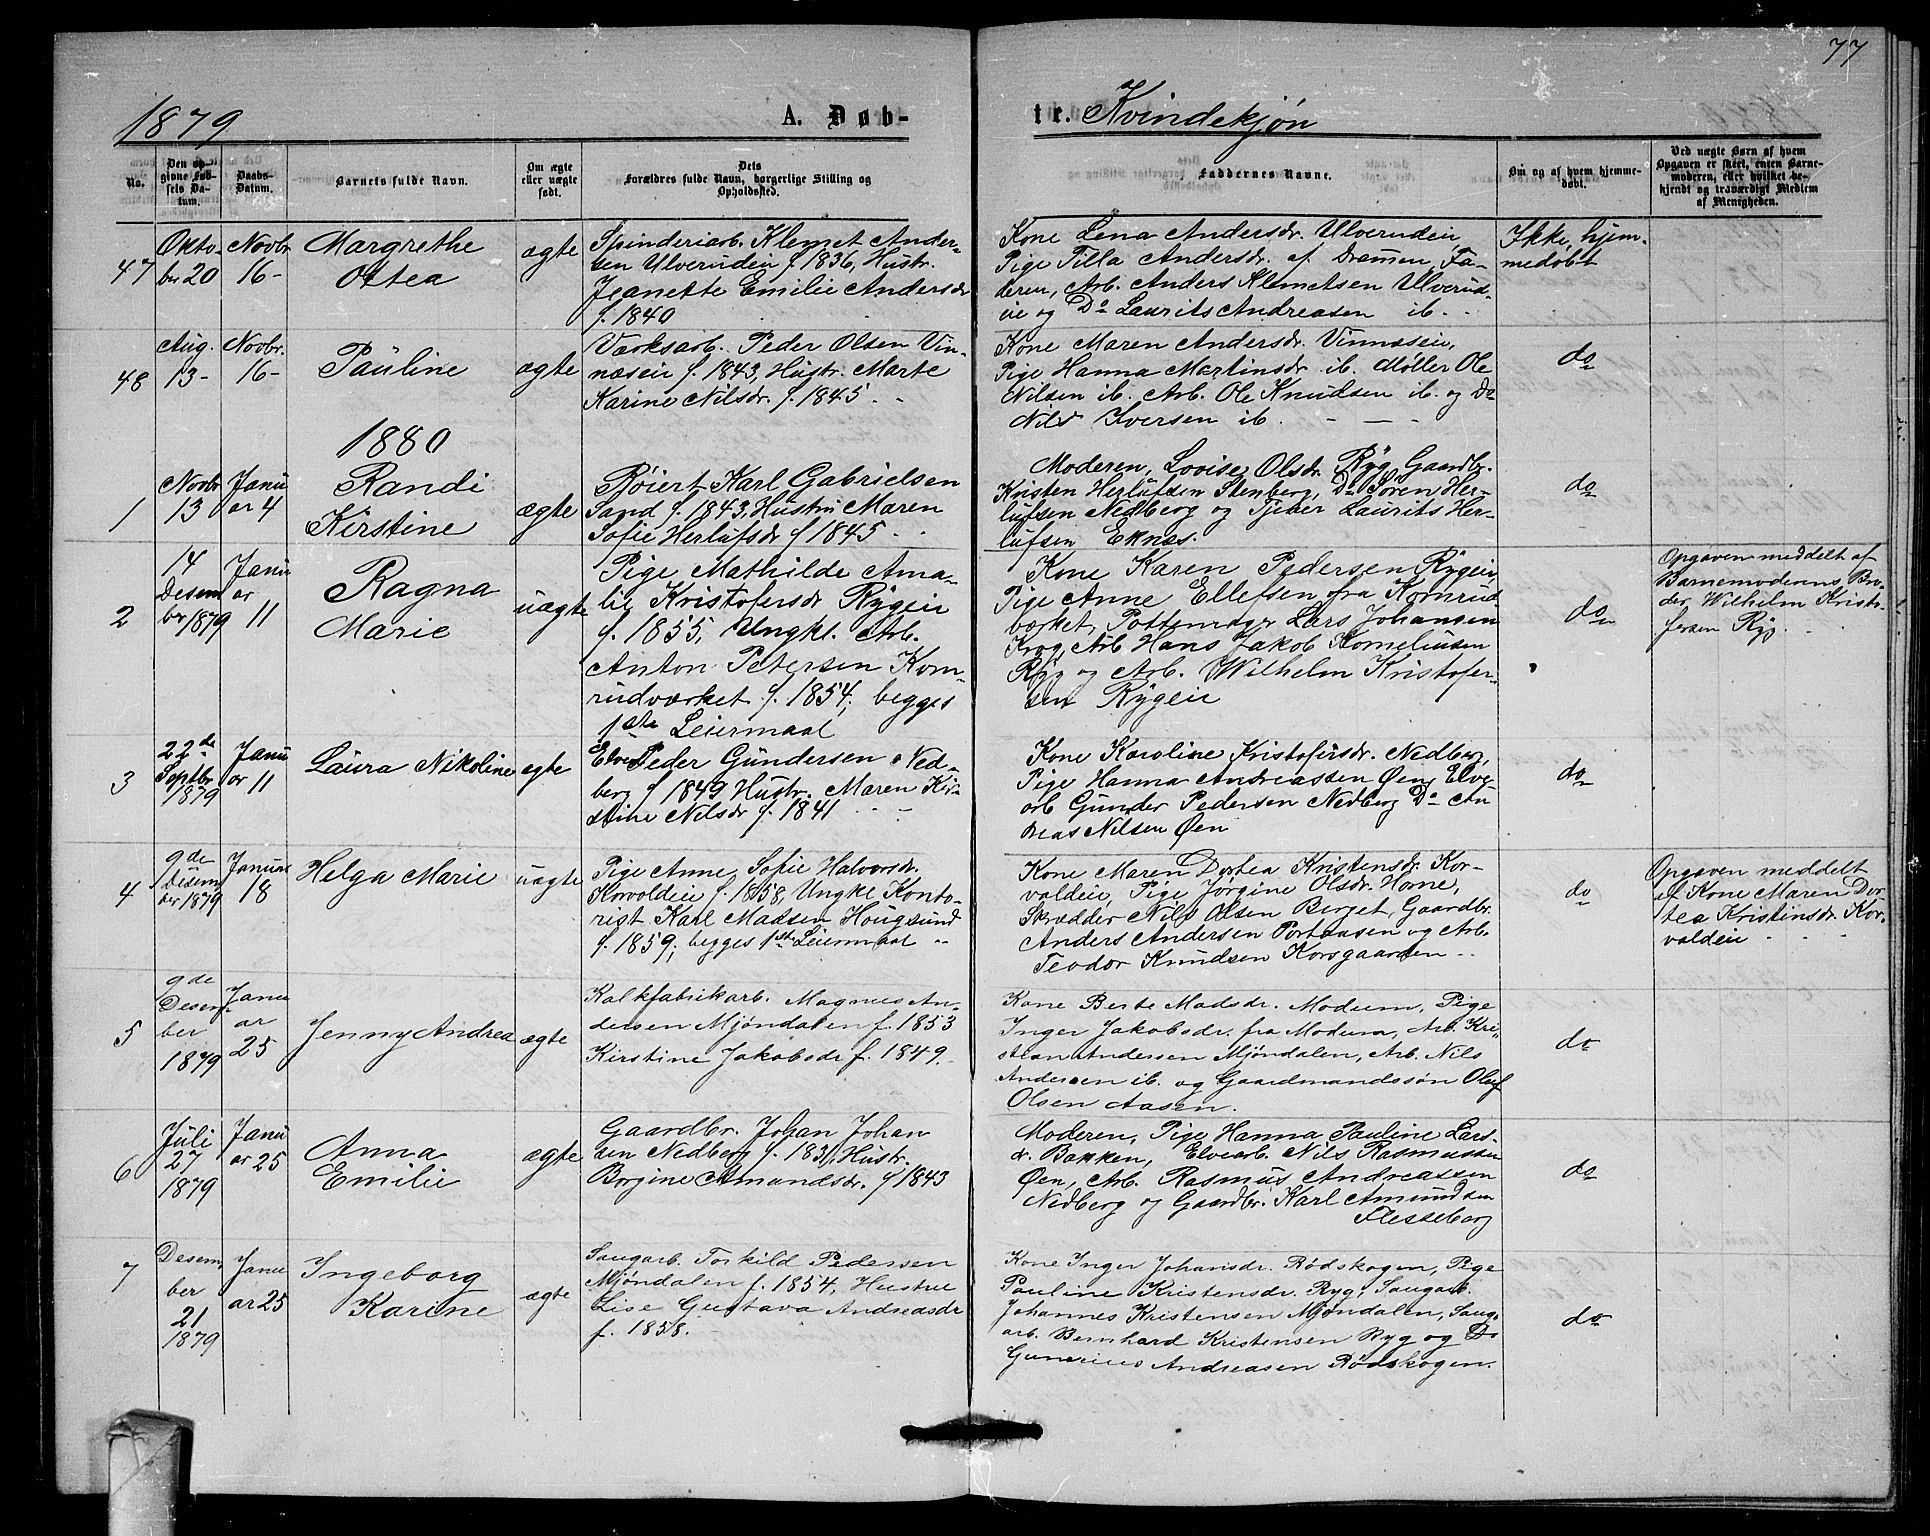 77
1879
A. Døb-
te. Kvindekjøn
No.
Den op-
givne Fød-
sels Da-
tum.
Daabs-
Datum.
Barnets fulde Navn.
Om ægte
eller uægte
født.
Dets
Forældres fulde Navn, borgerlige Stilling og
Opholdssted.
Faddernes Navne.
Om og af hvem hjemme-
døbt.
Ved uægte Børn af hvem
Opgaven er skeet, enten Barne-
moderen, eller hvilket be-
kjendt og troværdigt Medlem
af Menigheden.
47
Okto-
ber 20
Novbr
16-
Margrethe
Ottea
ægte
Spinderiarb. Klemet Ander-
sen Ulverudeie f. 1836, Hustr.
Jeanette Emilie Andersdr
f. 1840
Kone Lena Andersdr. Ulverudeie
Pige Tilla Andersdr. af Drammen, Fa-
deren, Arb. Anders Klemetsen Ulverud-
eie og Do Laurits Andreasen ib.
Ikke hjem-
medøbt
48
Aug.
13-
Novbr.
16-
Pauline
ægte
Værksarb. Peder Olsen Vin-
næseie f. 1843, Hustr. Marte
Karine Nilsdr. f. 1845.
Kone Maren Andersdr. Vinnæseie,
Pige Hanna Martinsdr. ib. Møller Ole
Nilsen ib. Arb. Ole Knudsen ib. og Do
Nils Iversen ib.
do
1880
1
Novbr
13
Janu
ar 4
Randi
Kirstine
ægte
Bøiert Karl Gabrielsen
Sand f. 1843, Hustru Maren
Sofie Herlufsdr f 1845
Moderen, Lovise Olsdr. Ryg, Gaardbr.
Kristen Herlufsen Stenberg, Do Søren Her-
lufsen Nedberg og Tjener Laurits Her-
lufsen Eknæs.
do
2
14
Desem
ber 1879
Janu
ar
11
Ragna
Marie
uægte
Pige Mathilde Ama-
lie Kristofersdr Rygeie
f. 1855, Ungkl. Arb.
Anton Petersen Kom-
rudværket f. 1854, begges
1ste Leiermaal
Kone Karen Pedersen Rygeie,
Pige Anne Ellefsen fra Komrud-
værket, Pottemager Lars Johansen
Krog, Arb Hans Jakob Korneliusen
Ryg og Arb. Wilhelm Kristofer-
sen Rygeie
do
Opgaven meddelt af
Barnemoderens Bro
der Wilhelm Kristo-
fersen Ryg
3
22de
Septbr
1879
Janu
ar 11
Laura Nikoline
ægte
Elvea. Peder Gundersen Ned-
berg f 1849 Hustr. Maren Kir-
stine Nilsdr f. 1841
Kone Karoline Kristofersdr. Nedberg,
Pige Hanna Andreassen Øen, Elve
arb Gunder Pedersen Nedberg Do An
dreas Nilsen Øen
do
4
9de
Desem
ber 1879
Januar
18
Helga Marie
uægte
Pige Anne Sofie Halvorsdr.
Korvaldeie f. 1858, Ungke Konto-
rist Karl Madsen Hougsund
f. 1859; begges 1ste Leiermaal
Kone Maren Dortea Kristensdr. Kor-
valdeie, Pige Jørgine Olsdr. Horne,
Skrædder Nils Olsen Berget, Gaardbr.
Anders Andersen Portaasen og Arb.
Teodor Knudsen Korsgaarden
do
Opgaven meddelt
af Kone Maren Dor
tea Kristensdr. Kor-
valdeie
5
9de
Desem
ber
1879
Janu
ar
25
Jenny Andrea
ægte
Kalkfabrikarb. Magnus An-
dersen Mjøndalen f. 1853
Kirstine Jakobsdr f. 1849.
Kone Berte Madsdr. Modum, Pige
Inger Jakobsdr. fra Modum, Arb. Kri-
stian Andersen Mjøndalen, Arb. Nils
Andersen ib. og Gaardmandssøn Oluf
Olsen Aasen.
do
6
Juli
27
1879
Janu
ar 25
Anna
Emilie
ægte
Gaardbr. Johan Johan
sen Nedberg f. 183, Hustr.
Borgine Amandsdr. f 1843
Moderen, Pige Hanna Pauline Lars-
dr. Bakken, Elvearb. Nils Rasmussen
Øen, Arb. Rasmus Andreassen
Nedberg og Gaardbr. Karl Amundsen
Flesseberg
do
7
Desem
ber
21
1879
Janu
ar 25
Ingeborg
Karine
ægte
Saugarb. Torkild Pedersen
Mjøndalen f. 1854, Hustru
Lise Gustava Andreasdr
f. 1858.
Kone Inger Johansdr. Rødskogen, Pige
Pauline Kristensdr. Ryg, Saugarb.
Johannes Kristensen Mjøndalen, Saug-
arb. Bernhard Kristensen Ryg og Do
Gunerius Andreasen Rødskogen.
do